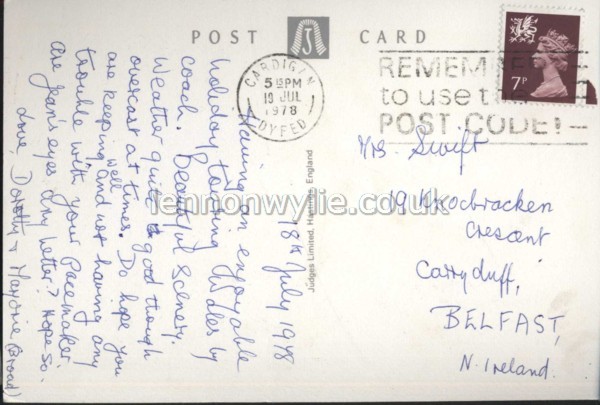 POST CARD
CARDIGAN
5 15 PM
18 JLY
1978
DYFED
REMEMBER
to use the
POST CODE!
7P
18th July 1978
Having an enjoyable
holiday touring Wales by
coach. Beautiful scenery.
Weather quite good though
overcast at times. Do hope you
are keeping well and not having any
trouble with your Pacemaker.
Are Jean's eyes any better? Hope so.
Love, Dorothy & Marjorie (Broad)
Judges Limited, Hastings, England
Mrs. Swift
19 Knockbracken
Crescent
Carryduff,
BELFAST,
N. Ireland.
lennonwylie.co.uk